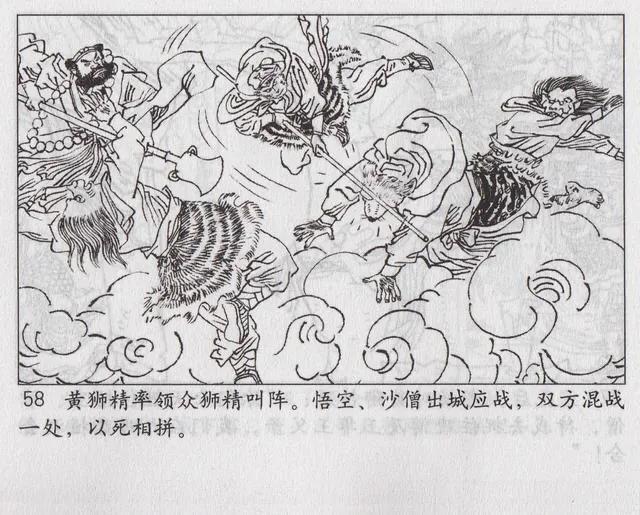 58 黄狮精率领众狮精叫阵。悟空、沙僧出城应战，双方混战
一处，以死相拼。